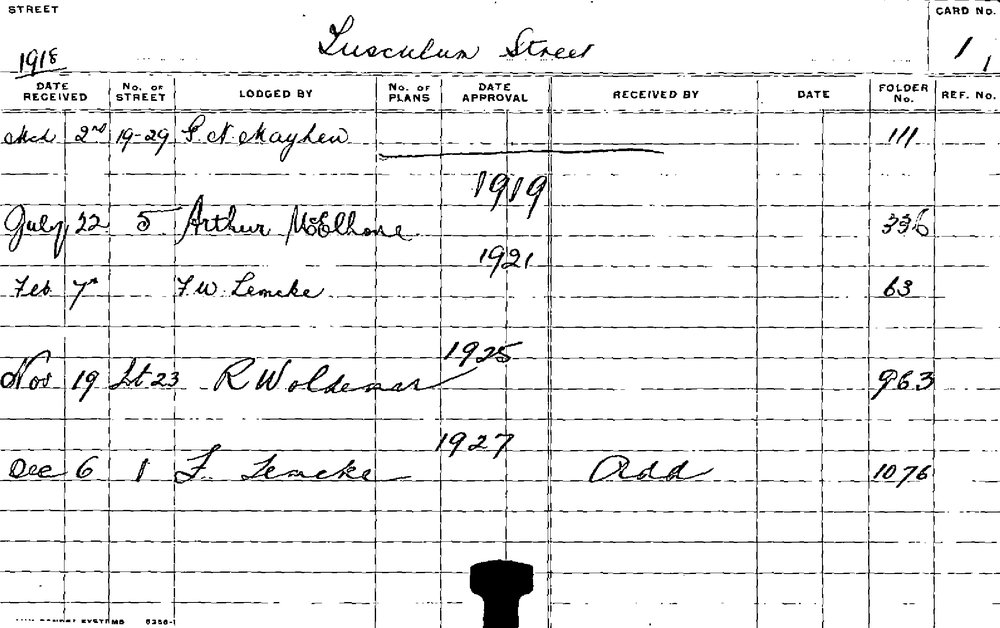 STREET
CARD No.
1918
Tusculum Street
1 1
DATE RECEIVED
No. OF STREET
LODGED BY
No. OF PLANS
DATE APPROVAL
RECEIVED BY
DATE
FOLDER No.
REF. No.
Mch 2nd 19-29 G. N. Mayhew 111
1919
July 22 5 Arthur McElhone 336
1921
Feb 7th F. W. Lemcke 63
1925
Nov 19 Lt 23 R Woldemar 963
1927
Dec 6 1 F. Lemcke Add 1076
SYSTEMS 6356-1